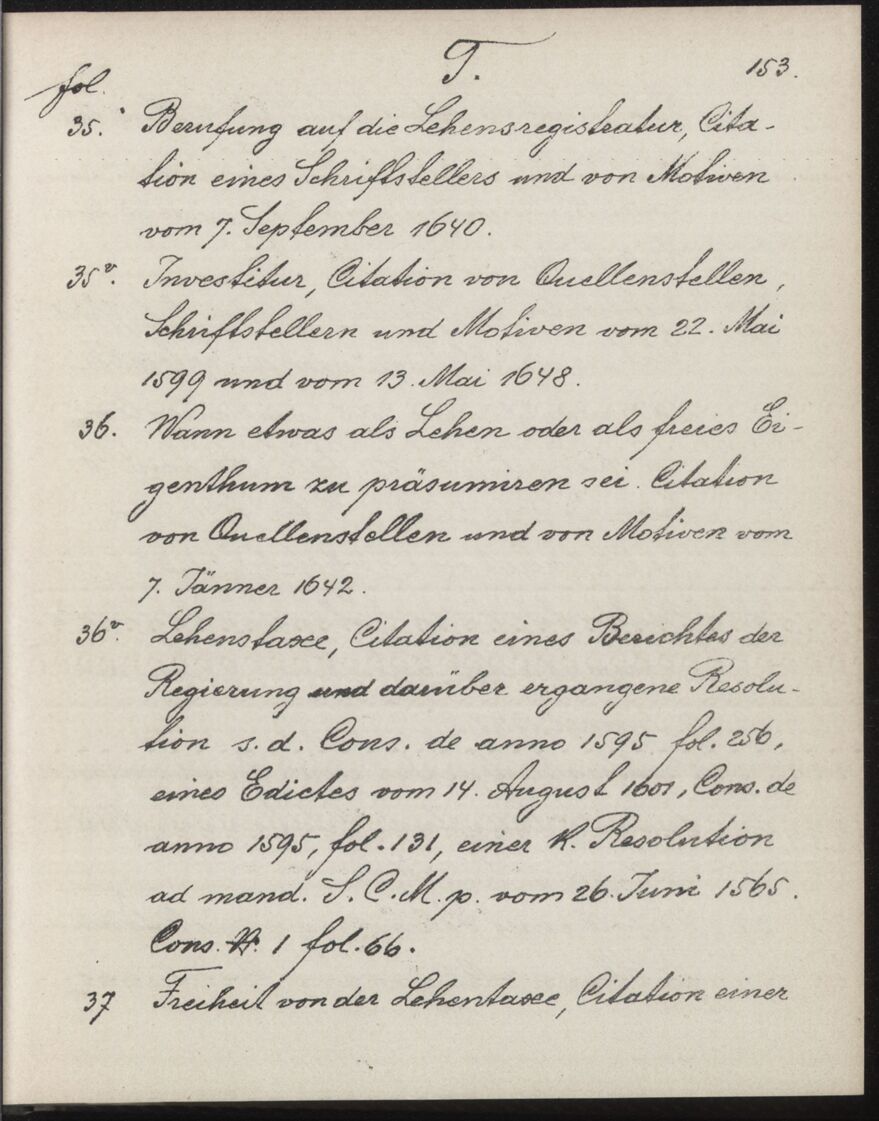 T.
153.
fol.
35. Berufung auf die Lehensregistratur, Cita-
tion eines Schriftstellers und von Motiven
vom 7. September 1640.
35v. Investitur, Citation von Quellenstellen,
Schriftstellern und Motiven vom 22. Mai
1599 und vom 13. Mai 1648.
36. Wann etwas als Lehen oder als freies Ei-
genthum zu präsumiren sei. Citation
von Quellenstellen und von Motiven vom
7. Jänner 1642.
36v. Lehenstaxe, Citation eines Berichtes der
Regierung und darüber ergangene Resolu-
tion s. d. Cons. de anno 1595 fol. 256,
eines Edictes vom 14. August 1601, Cons. de
anno 1595, fol. 131, einer K. Resolution
ad mand. S. C. M. p. vom 26. Juni 1565.
Cons. N. 1 fol. 66.
37 Freiheit von der Lehentaxe, Citation einer